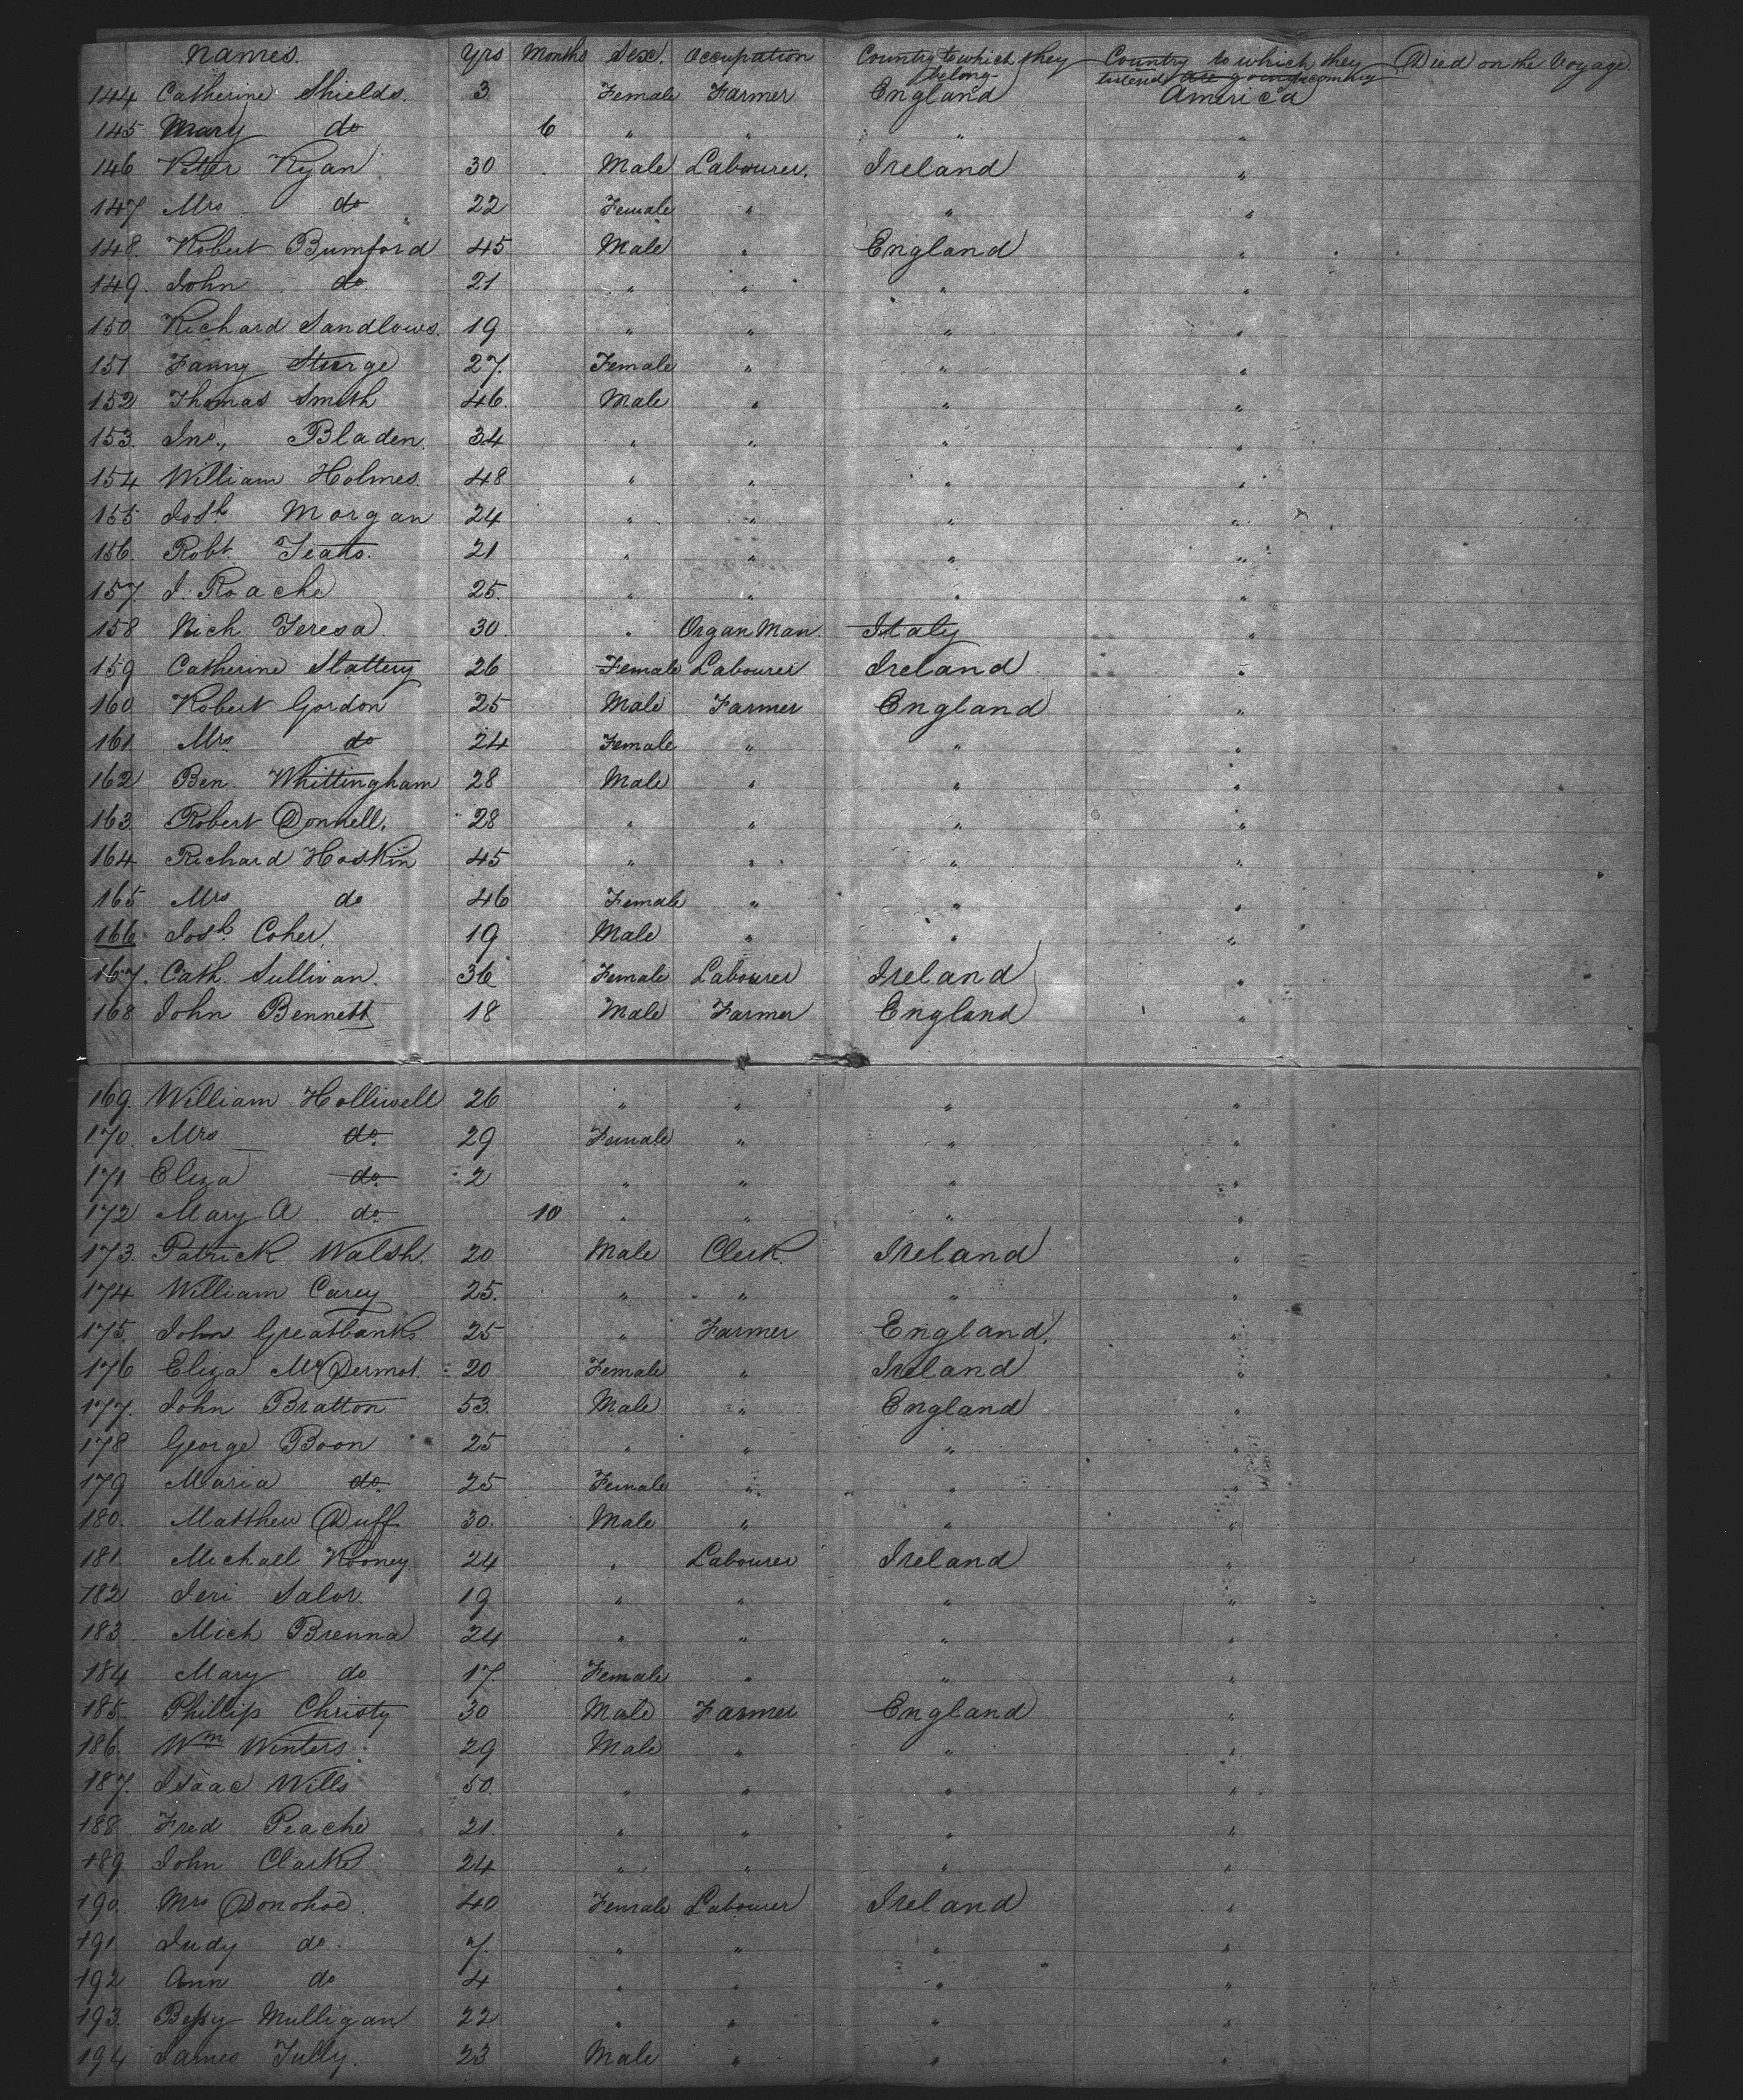 names. Yrs Months Sex. Occupation Country to which they belong Country to which they intend are going becoming Died on the Voyage.
144 Catherine Shields. 3 Female Farmer England America
145 Mary do 6 " " " "
146 Peter Ryan 30 Male Labourer. Ireland "
147 Mrs do 22 Female " " "
148. Robert Bumford 45 Male " England "
149. John do 21 " " " "
150 Richard Sandlows. 19 " " " "
151 Fanny Sturge 27. Female " " "
152 Thomas Smith 46. Male " " "
153. Jno., Bladen. 34 " " " "
154 William Holmes. 48 " " " "
155 Josh. Morgan 24 " " " "
156. Robt. Teats. 21 " " " "
157. J. Roache 25. " " " "
158 Nich Teresa. 30. " Organ Man. Italy "
159 Catherine Slattery 26 Female Labourer Ireland "
160 Robert Gordon 25 Male Farmer England "
161 Mrs do 24 Female " " "
162 Ben. Whittingham 28 Male " " "
163. Robert Donnell. 28 " " " "
164 Richard Hoskin 45 " " " "
165 Mrs do 46 Female " " "
166. Josh. Coher. 19 Male " " "
167. Cath. Sullivan. 36 Female Labourer Ireland "
168 John Bennett 18 Male Farmer England "
169. William Holliwell 26 " " " "
170. Mrs do. 29 Female " " "
171 Eliza do. 2 " " " "
172 Mary A do. 10 " " " "
173. Patrick Walsh. 20 Male Clerk. Ireland "
174 William Carey 25. " " " "
175. John Greatbanks 25 " Farmer England. "
176 Eliza McDermot. 20 Female " Ireland "
177. John Bratton 53. Male " England "
178 George Boon 25 " " " "
179 Maria do. 25 Female " " "
180. Matthew Duff 30. Male " " "
181 Michael Rooney 24 " Labourer Ireland "
182 Jeri Salor. 19 " " " "
183. Mich Brenna 24 " " " "
184 Mary do 17. Female " " "
185. Phillip Christy 30 Male Farmer England "
186. Wm Winters. 29 Male " " "
187. Isaac Wills 50. " " " "
188 Fred Peache 21. " " " "
189 John Clarke 24 " " " "
190. Mrs Donohoe. 40 Female Labourer Ireland "
191 Judy do. 7. " " " "
192 Ann do 4 " " " "
193. Bessy Mulligan 22 " " " "
194 James Tully. 23 Male " " "